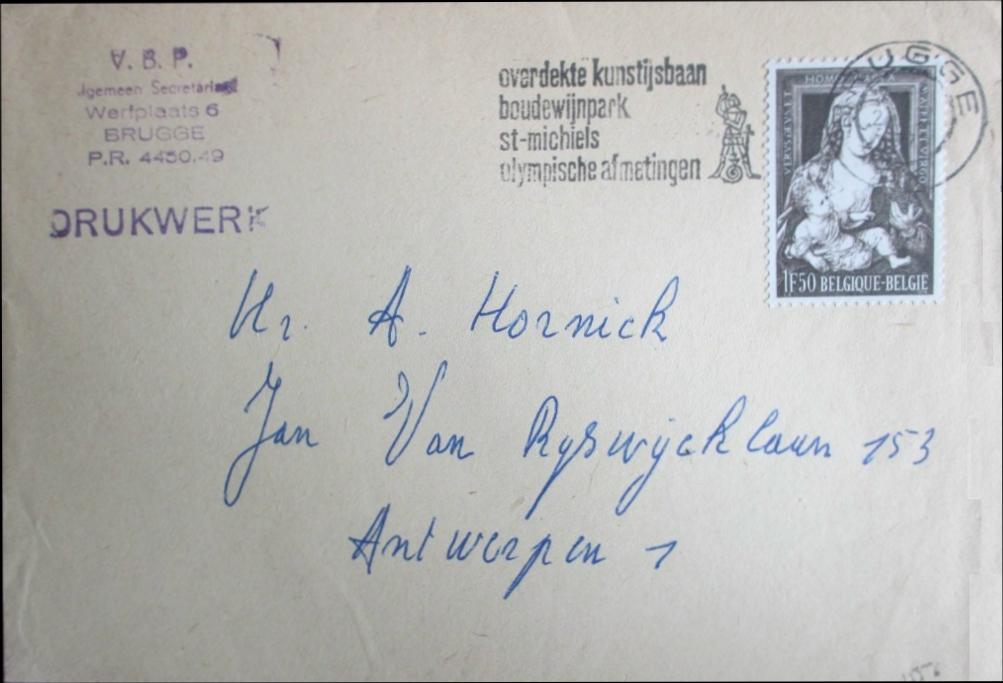 V. B. P.
lgemeen Secretariaat
Werfplaats 6
BRUGGE
P.R. 4450.49
DRUKWERK
overdekte kunstijsbaan
boudewijnpark
st-michiels
olympische afmetingen
BRUGGE
1F50 BELGIQUE-BELGIE
Hr. A. Hornick
Jan Van Ryswycklaan 153
Antwerpen 1